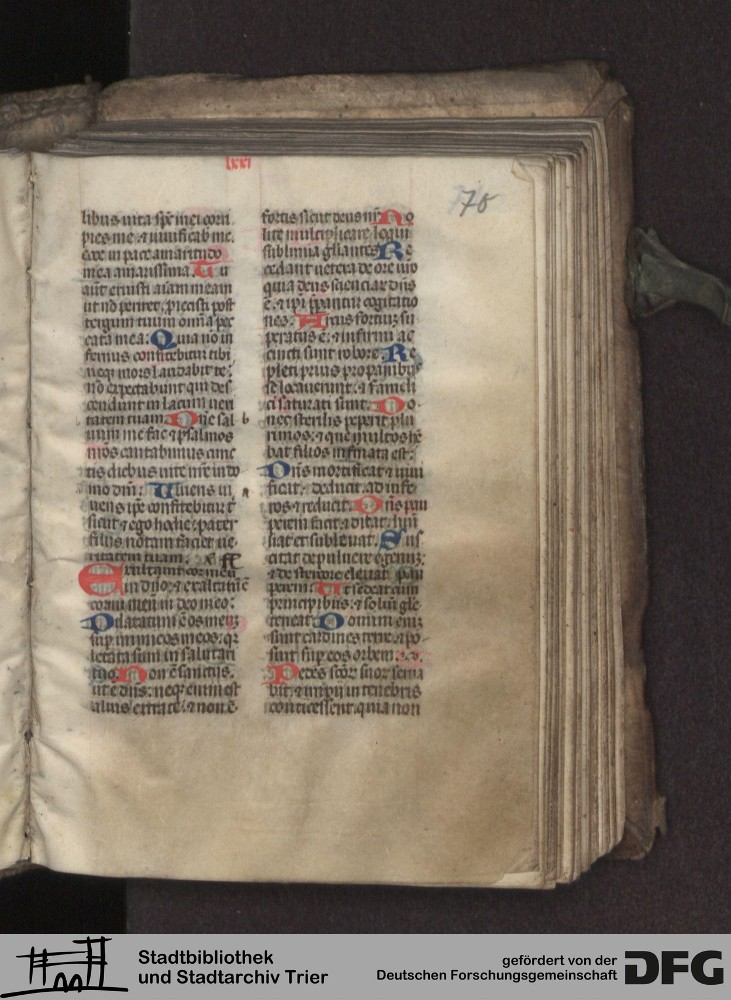 lxxi
70
libus uita sp̄s mei corri
pies me ⁊ uiuificab me.
Ecce in pace amaritudo
mea amarissima. Tu
aūt eruisti aīam meam
ut nō periret, ꝓiecisti post
tergum tuum om̄ia pec
cata mea: Quia nō in
fernus confitebitur tibi
neq; mors laudabit te:
nō expectabunt qui des
cendunt in lacum ueri
tatem tuam. Dn̄e sal
uum me fac ⁊ psalmos
nr̄os cantabimus cunc
tis diebus uite nr̄e in do
mo dn̄i: Viuens ui
uens ip̄e confitebitur t̄
sicut ⁊ ego hodie: pater
filiis notam faciet ue
ritatem tuam.
Exultauit cor meū
in dn̄o: ⁊ exaltatū ē
cornu meū in deo meo:
Dilatatum ē os meū
sup inimicos meos: qr
letata sum in salutari
tuo. Non ē sanctus,
ut ē dn̄s: neq; enim est
alius extra te: ⁊ non ē
fortis sicut deus nr̄. No
lite multiplicare loqui
sublimia gl̄iantes. Re
cedant uetera de ore uro
quia deus scienciar dn̄s
ē. ⁊ ipi p̄parantur cogitatio
nes. Arcus fortium su
peratus ē: ⁊ infirmi ac
cincti sunt robore. Re
pleti prius pro panibus
se locauerunt: ⁊ fameli
ci saturati sunt. Do
nec sterilis peperit plu
rimos: ⁊ que multos hē
bat filios infirmata est:
Dn̄s mortificat ⁊ uiui
ficat: deducit ad infe
ros ⁊ reducit. Dn̄s pau
perem facit ⁊ ditat: hūi
liat et subleuat. Sus
citat de puluere egenum:
⁊ de stercore eleuat pau
perem: Ut sedeat cum
principibus: ⁊ soliū gl̄e
teneat. Domini eni
sunt cardines terre: ⁊ po
suit sup eos orbem.
Pedes scōr suor serua
bit: ⁊ impii in tenebris
conticescent: quia non
Stadtbibliothek
und Stadtarchiv Trier
gefördert von der
Deutschen Forschungsgemeinschaft
DFG